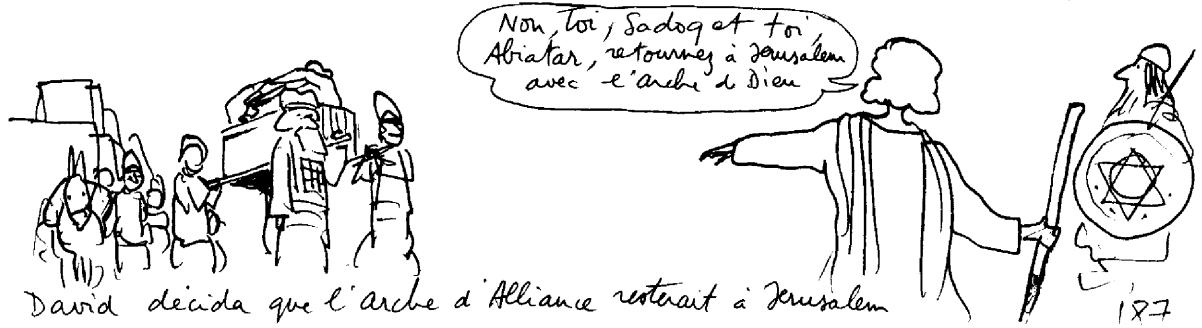 Non, toi, Sadoq et toi,
Abiatar, retournez à Jerusalem
avec l'arche d Dieu
David décida que l'arche d'Alliance resterait à Jerusalem
187